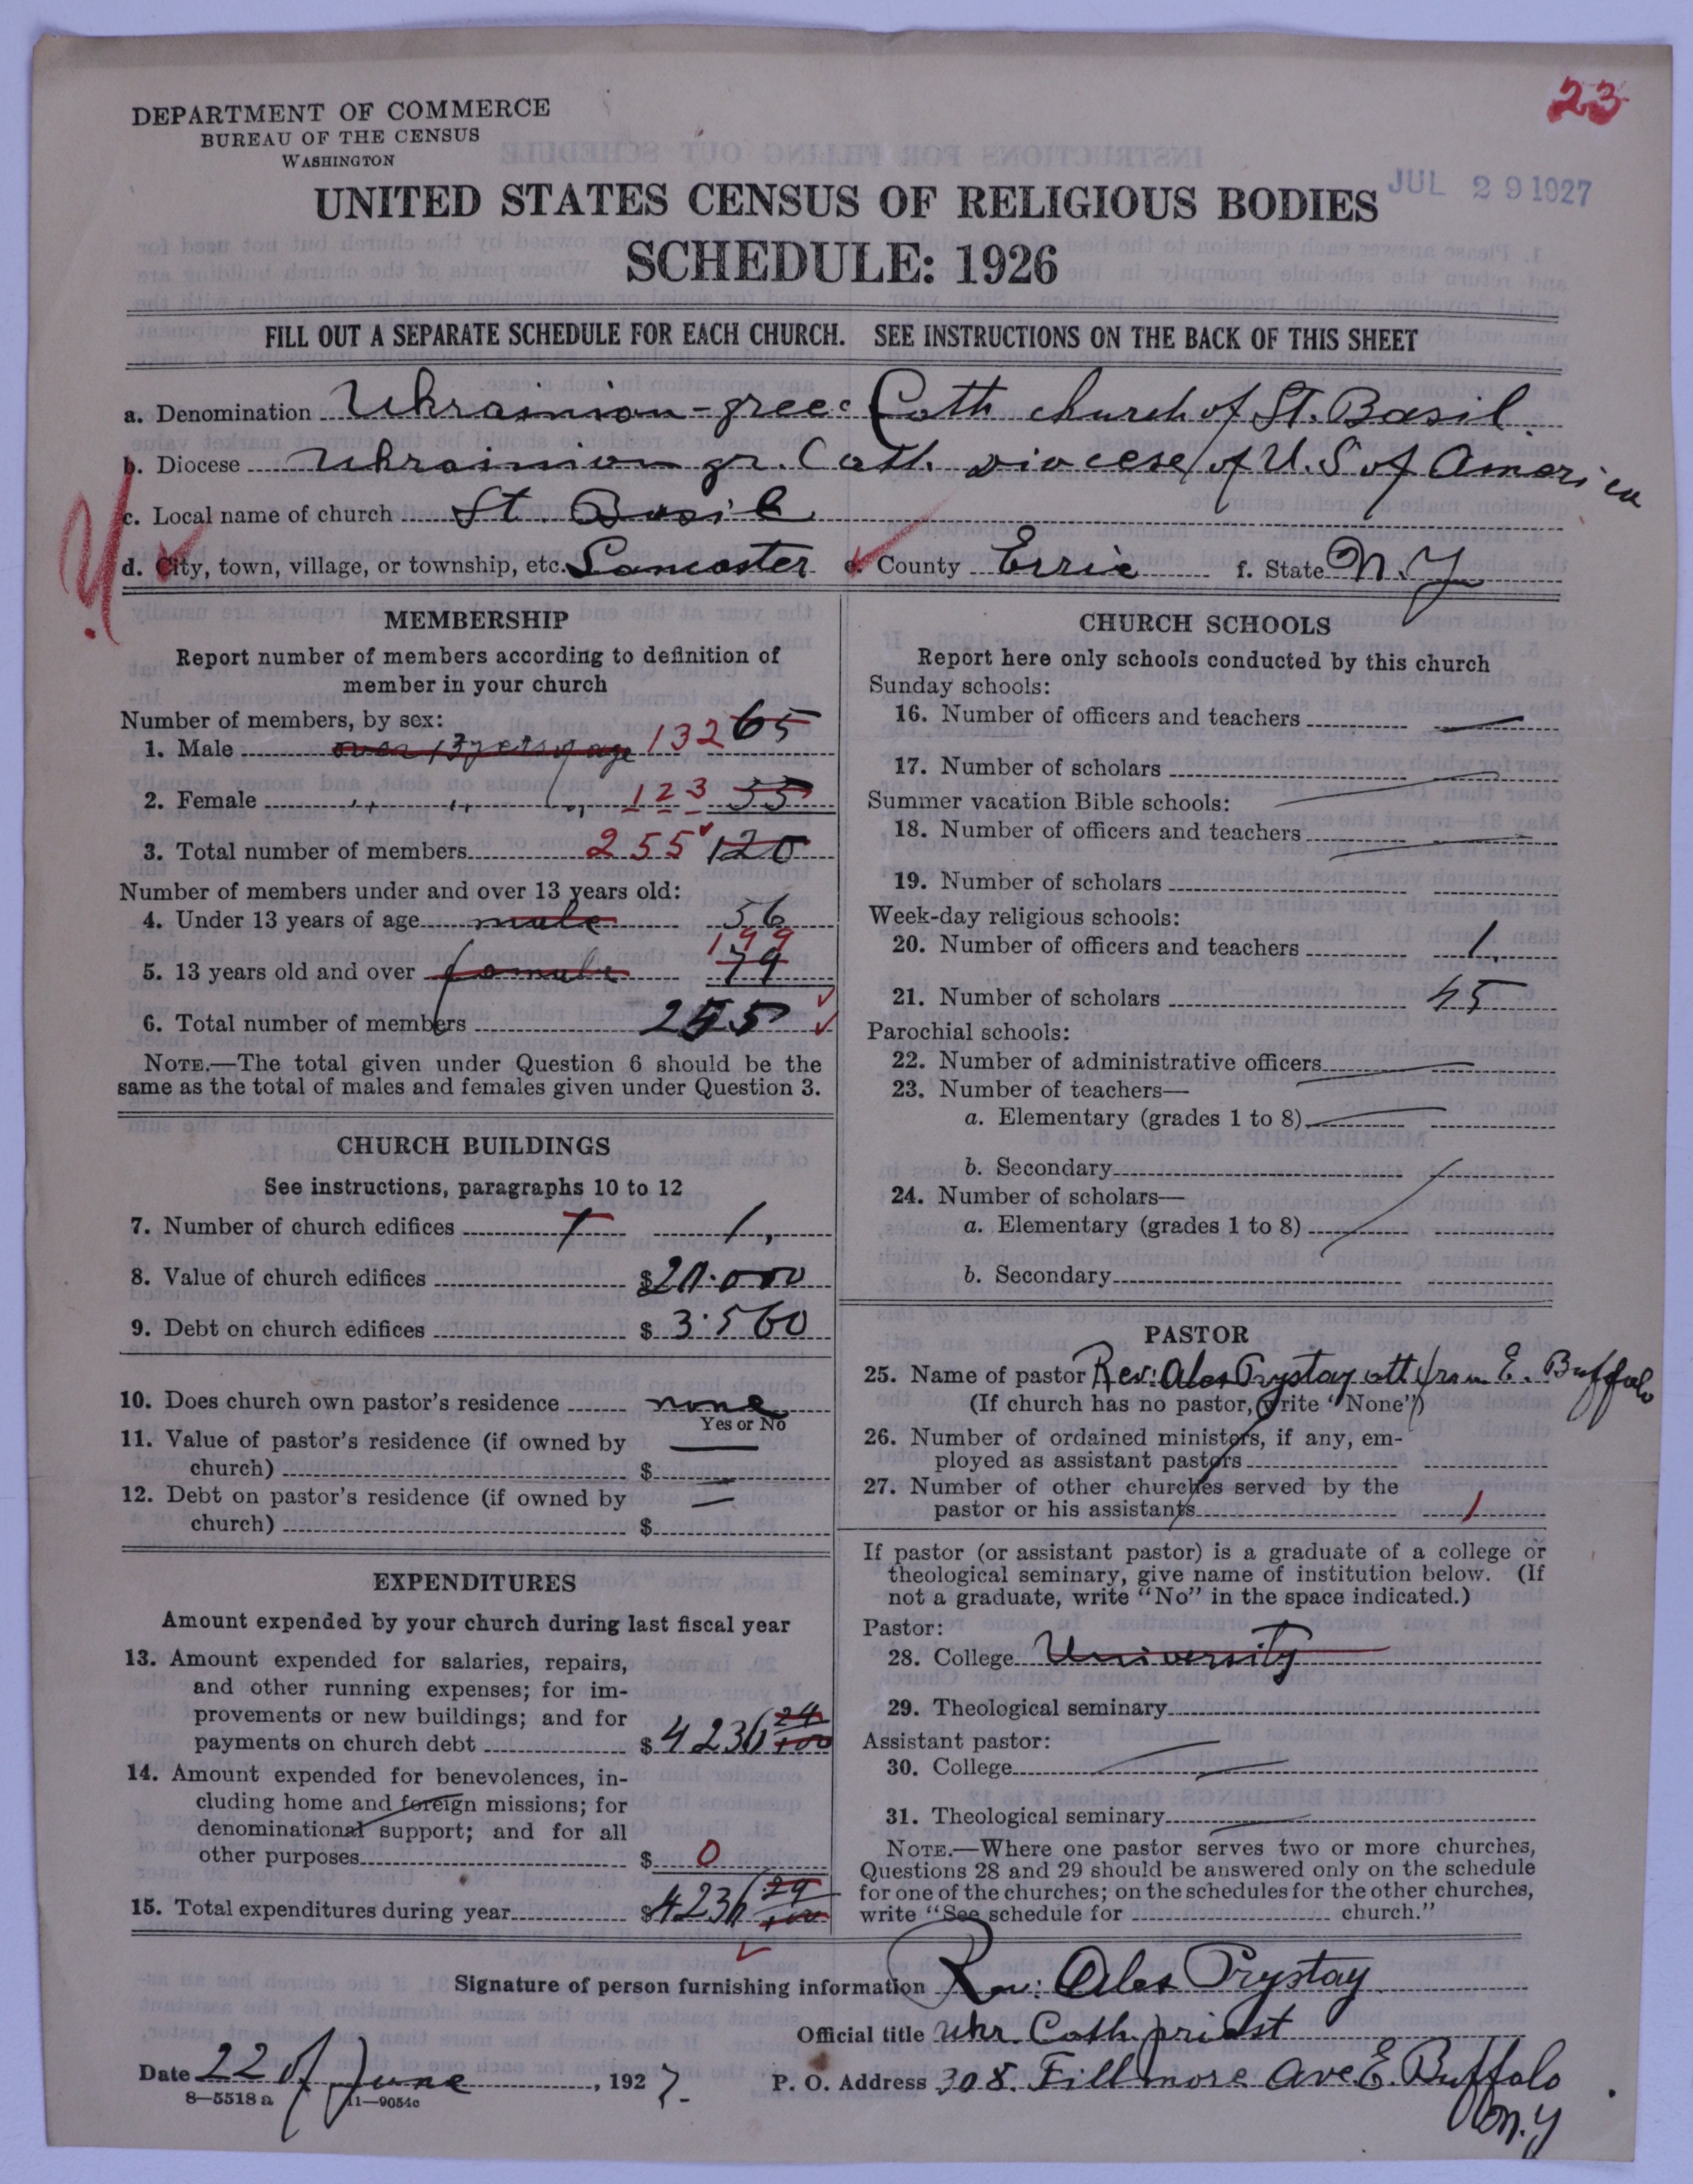 23
DEPARTMENT OF COMMERCE
BUREAU OF THE CENSUS
WASHINGTON
JUL 29 1927
UNITED STATES CENSUS OF RELIGIOUS BODIES
SCHEDULE: 1926
FILL OUT A SEPARATE SCHEDULE FOR EACH CHURCH. SEE INSTRUCTIONS ON THE BACK OF THIS SHEET
a. Denomination Ukrainian-greec Cath church of St. Basil.
b. Diocese Ukrainian gr. Cath. Diocese of U.S of America
c. Local name of church St. Basil
d. City, town, village, or township, etc. Lancaster e. County Errie f. State N.Y
MEMBERSHIP
Report number of members according to definition of
member in your church
Number of members, by sex:
1. Male over 13 yers of age 132 65
2. Female ,, ,, ,, 123 55
3. Total number of members 255 120
Number of members under and over 13 years old:
4. Under 13 years of age male 56
199
5. 13 years old and over female 79
6. Total number of members 255
NOTE.—The total given under Question 6 should be the
same as the total of males and females given under Question 3.
CHURCH BUILDINGS
See instructions, paragraphs 10 to 12
7. Number of church edifices 1 1,
8. Value of church edifices $20.000
9. Debt on church edifices $ 3.560
10. Does church own pastor's residence none
Yes or No
11. Value of pastor's residence (if owned by
church) $ —
12. Debt on pastor's residence (if owned by
church) $ —
EXPENDITURES
Amount expended by your church during last fiscal year
13. Amount expended for salaries, repairs,
and other running expenses; for im-
provements or new buildings; and for
payments on church debt $ 4236 24/100
14. Amount expended for benevolences, in-
cluding home and foreign missions; for
denominational support; and for all
other purposes $ 0
15. Total expenditures during year $4236 24/100
CHURCH SCHOOLS
Report here only schools conducted by this church
Sunday schools:
16. Number of officers and teachers —
17. Number of scholars —
Summer vacation Bible schools:
18. Number of officers and teachers —
19. Number of scholars
Week-day religious schools:
20. Number of officers and teachers 1.
21. Number of scholars 45
Parochial schools:
22. Number of administrative officers —
23. Number of teachers—
a. Elementary (grades 1 to 8) —
b. Secondary
24. Number of scholars—
a. Elementary (grades 1 to 8)
b. Secondary
PASTOR
25. Name of pastor Rev: Alex Prystay att from E. Buffalo
(If church has no pastor, write "None")
26. Number of ordained ministers, if any, em-
ployed as assistant pastors
27. Number of other churches served by the
pastor or his assistants 1
If pastor (or assistant pastor) is a graduate of a college or
theological seminary, give name of institution below. (If
not a graduate, write "No" in the space indicated.)
Pastor:
28. College University
29. Theological seminary
Assistant pastor:
30. College —
31. Theological seminary —
NOTE.—Where one pastor serves two or more churches,
Questions 28 and 29 should be answered only on the schedule
for one of the churches; on the schedules for the other churches,
write "See schedule for church."
Signature of person furnishing information Rev: Alex Prystay
Official title Ukr. Cath. priest
Date 22 of June, 1927. P. O. Address 308. Fillmore Ave E. Buffalo
N.Y
8—5518 a 11—9054c